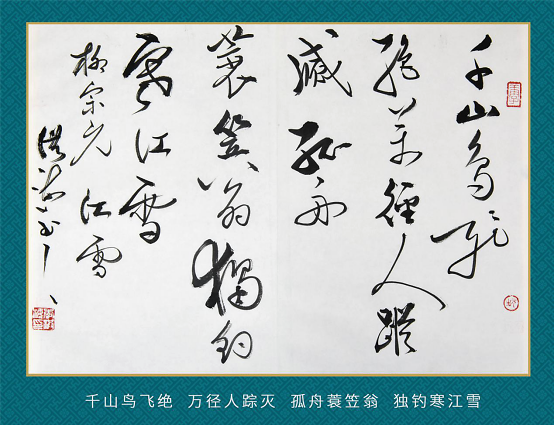 千山鳥飛
絕萬徑人蹤
滅孤舟
蓑笠翁獨釣
寒江雪
柳宗元 江雪
千山鸟飞绝 万径人踪灭 孤舟蓑笠翁 独钓寒江雪